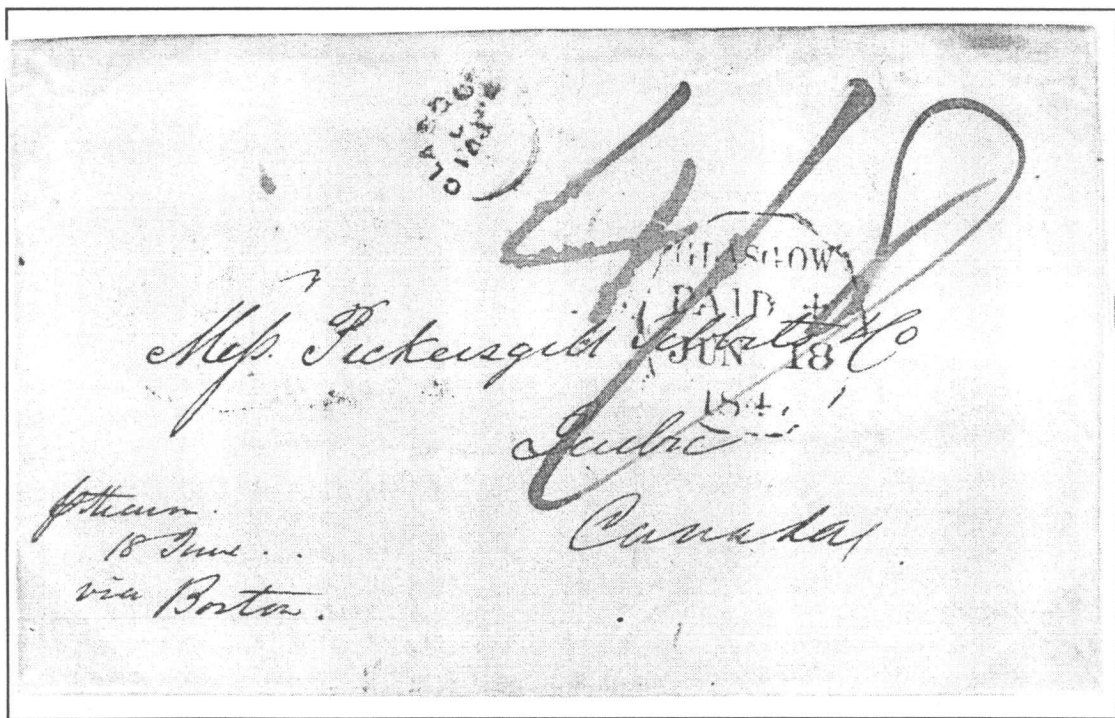 GLASGOW
4/8
GLASGOW
PAID
JUN 18
184
Mess. Pickersgill & Co
Quebec
Canada
p steamer
18 June
via Boston.